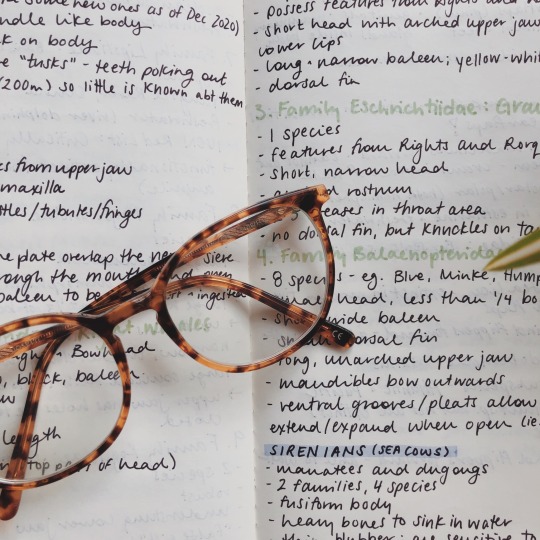 some new ones as of Dec 2020)
ndle like body
k on body
e "tusks" - teeth poking out
(200m) so little is known abt them
s from upper jaw
maxilla
ttles/tubules/fringes
ne plate overlap the ne
rough the mouth and
baleen to be ingested
Whales
Bowhead
baleen
length
top of head)
- possess features from Rights and
- short head with arched upper jaw
lower lips
- long, narrow baleen; yellow-whi
- dorsal fin
3. Family Eschrichtiidae: Gra
- 1 species
- features from Rights and Rorq
- short, narrow head
rostrum
creases in throat area
- no dorsal fin, but knuckles on ta
4. Family Balaenopteridae
- 8 species - eg. Blue, Minke, Hump
head, less than 1/4 bo
- short wide baleen
- small dorsal fin
- long, unarched upper jaw
- mandibles bow outwards
- ventral grooves/pleats allow
extend/expand when open
SIRENIANS (SEA COWS)
- manatees and dugongs
- 2 families, 4 species
- fusiform body
- heavy bones to sink in water
blubber; are sensitive to